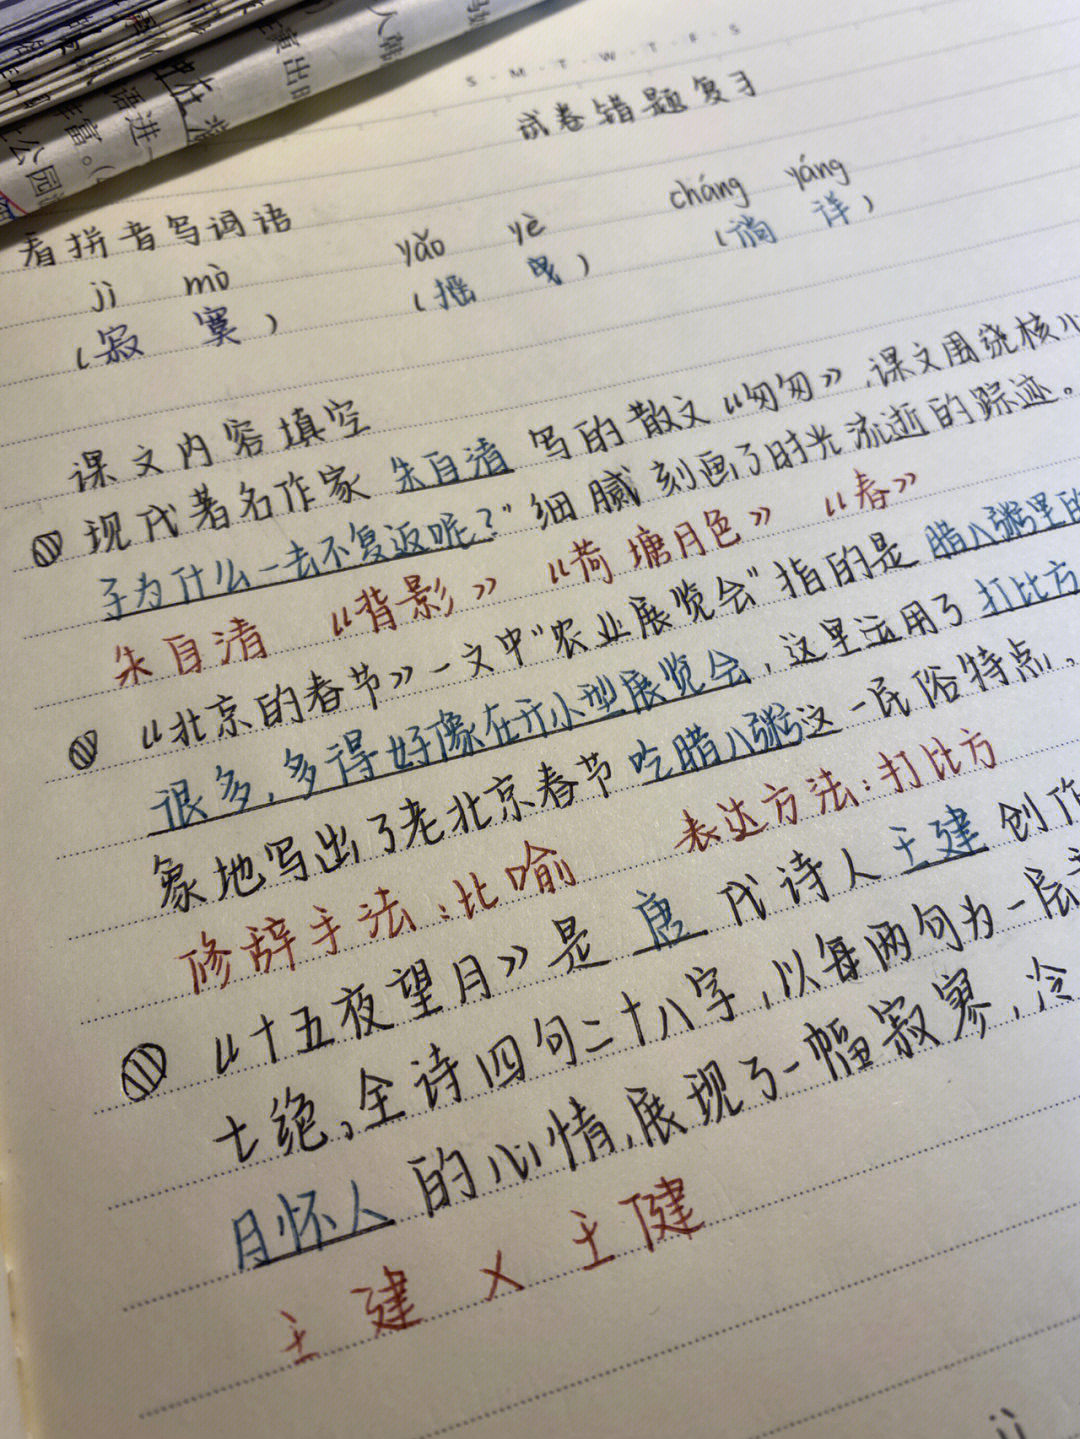 S·M·T·W·T·F·S
试卷错题复习
看拼音写词语
jì mò yǎo yè cháng yáng
(寂寞) (摇曳) (徜徉)
课文内容填空
现代著名作家 朱自清 写的散文《匆匆》,课文围绕核心
子为什么一去不复返呢?"细腻刻画了时光流逝的踪迹。
朱自清 《背影》 《荷塘月色》 《春》
《北京的春节》一文中"农业展览会"指的是 腊八粥里的
很多,多得好像在开小型展览会,这里运用了 打比方
象地写出了老北京春节 吃腊八粥这一民俗特点.
修辞手法:比喻 表达方法:打比方
《十五夜望月》是 唐 代诗人 王建 创作
七绝,全诗四句二十八字,以每两句为一层
月怀人 的心情,展现了一幅寂寥,冷
王建 × 王健